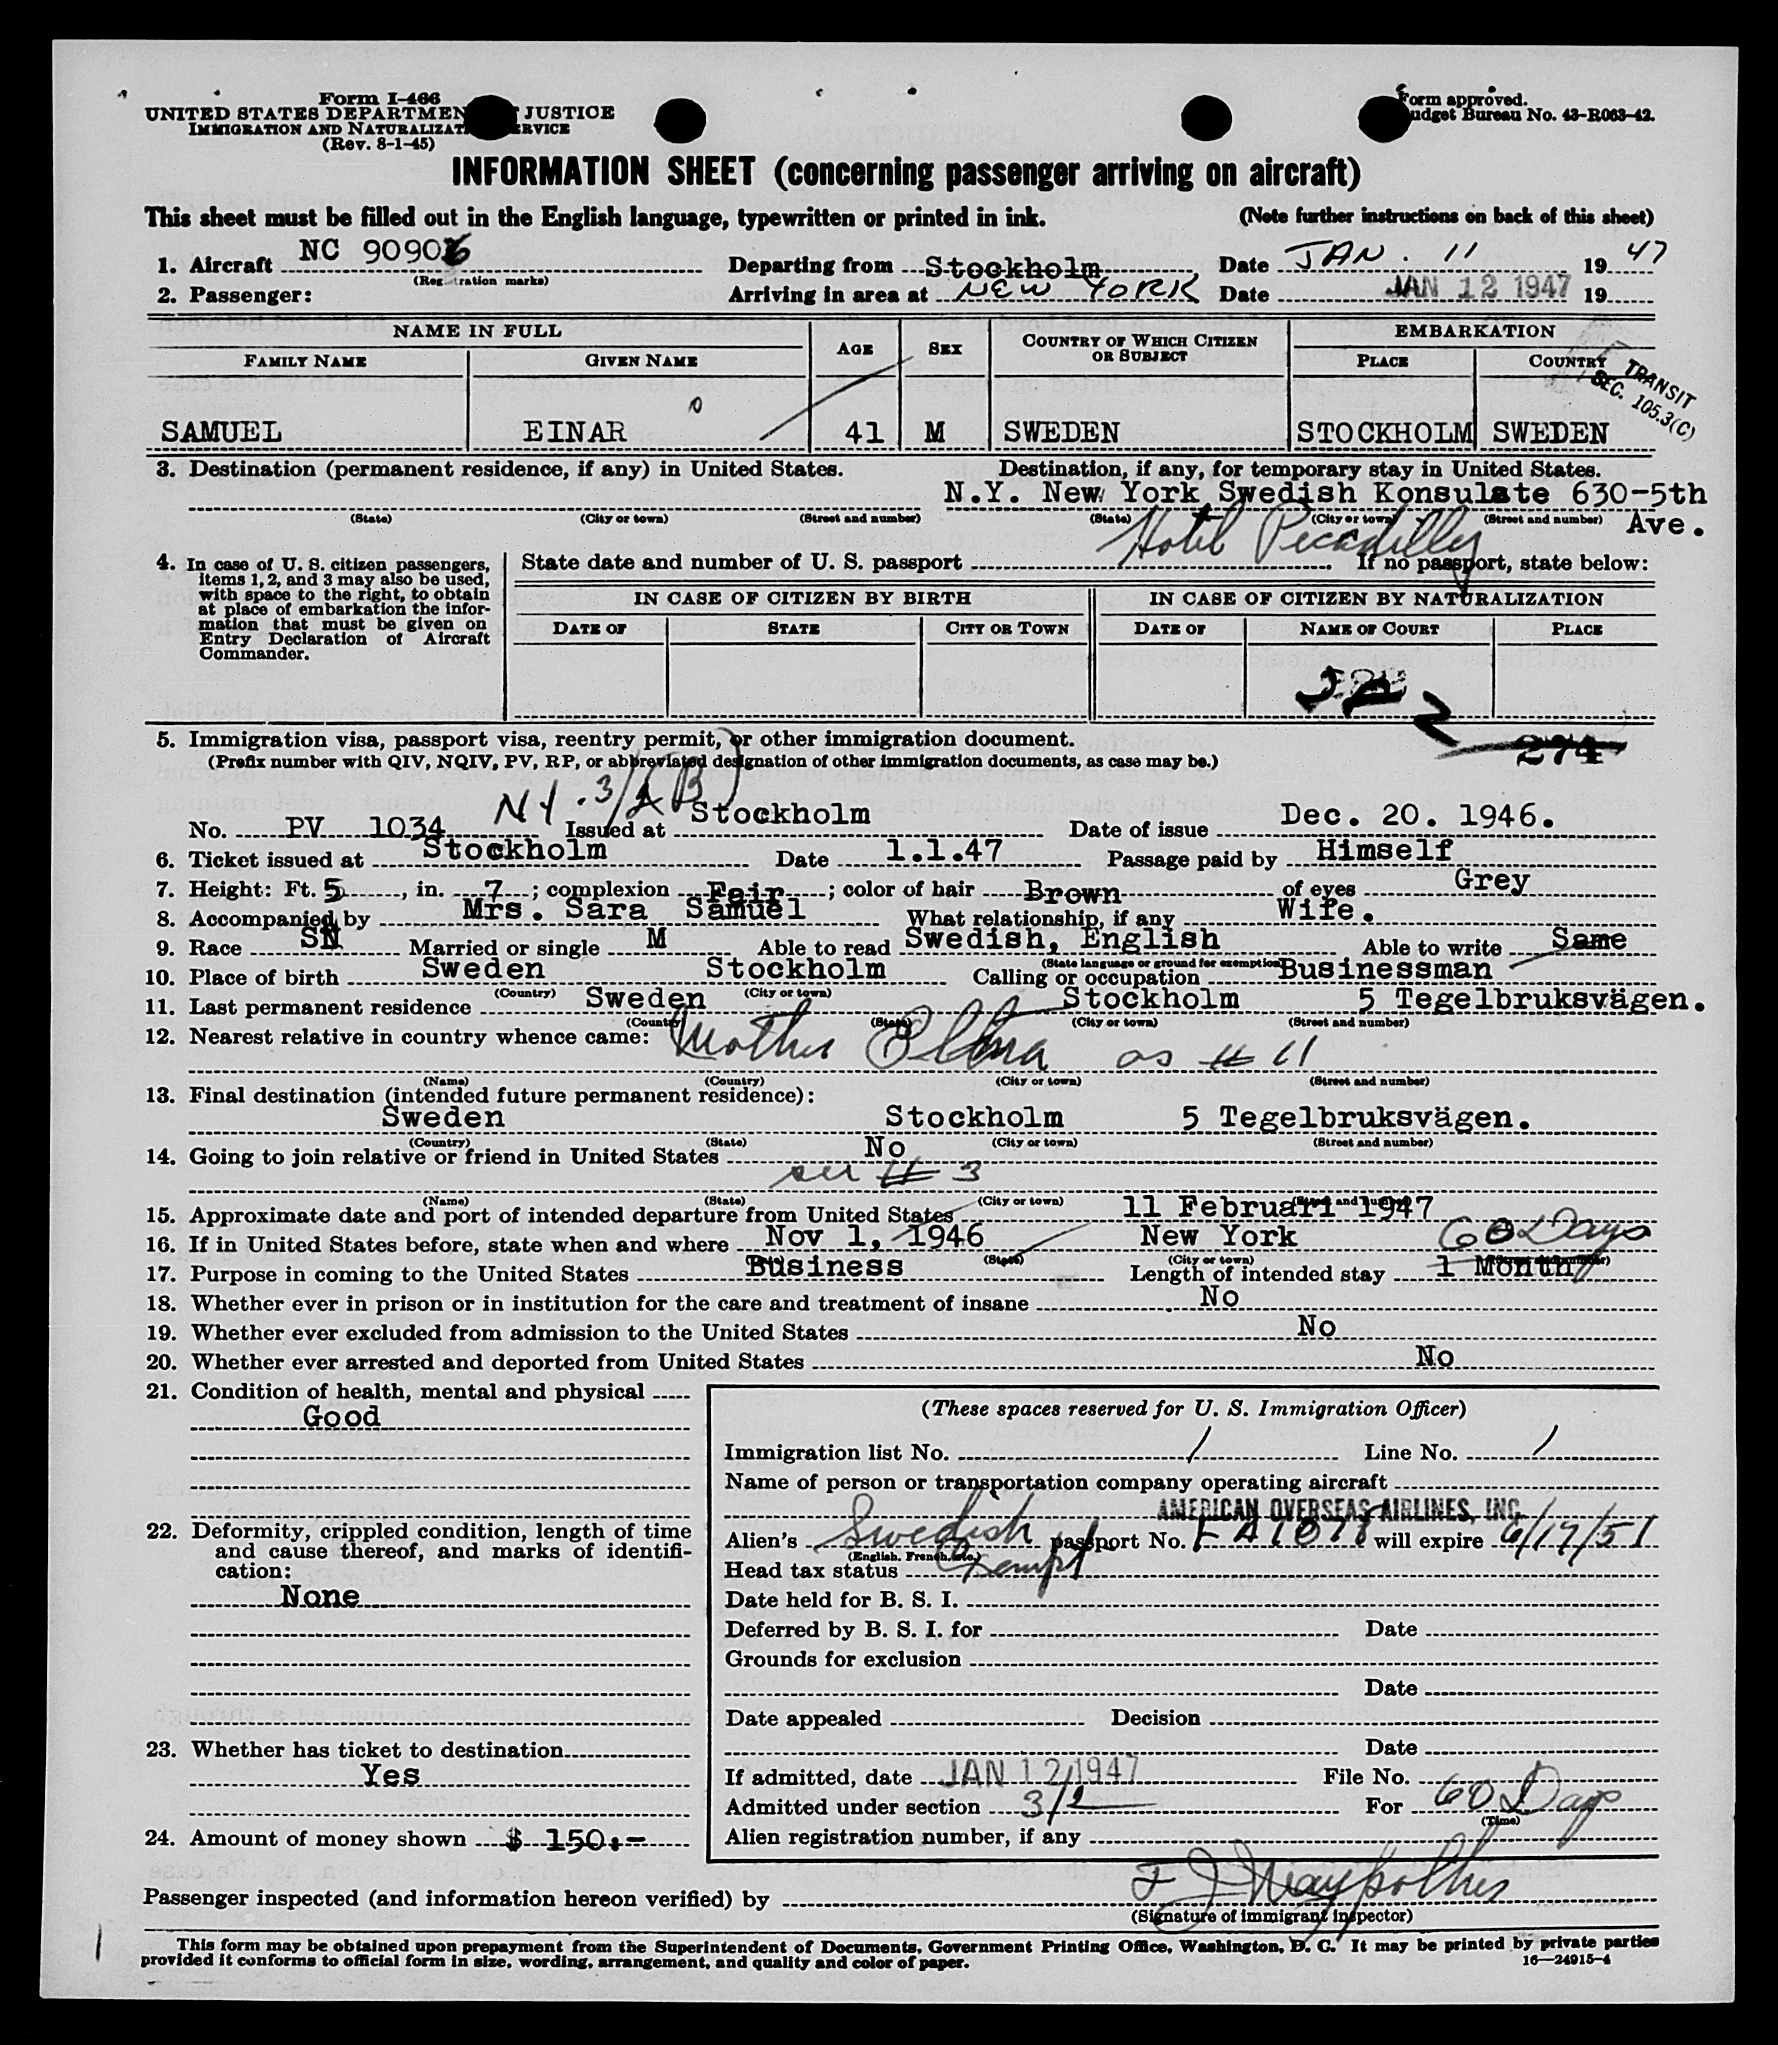 Form I-466
UNITED STATES DEPARTMEN JUSTICE
IMMIGRATION AND NATURALIZAT ERVICE
(Rev. 8-1-45)
Form approved.
udget Bureau No. 43-R063-42.
INFORMATION SHEET (concerning passenger arriving on aircraft)
This sheet must be filled out in the English language, typewritten or printed in ink. (Note further instructions on back of this sheet)
1. Aircraft NC 90906 Departing from Stockholm, Date JAN. 11 1947
(Registration marks)
2. Passenger: Arriving in area at NEW YORK Date JAN 12 1947 19
NAME IN FULL AGE SEX COUNTRY OF WHICH CITIZEN OR SUBJECT EMBARKATION
FAMILY NAME GIVEN NAME PLACE COUNTRY
TRANSIT
SEC. 105.3(C)
SAMUEL EINAR 41 M SWEDEN STOCKHOLM SWEDEN
3. Destination (permanent residence, if any) in United States. Destination, if any, for temporary stay in United States.
N.Y. New York Swedish Konsulate 630-5th
(State) (City or town) (Street and number) (State) (City or town) (Street and number) Ave.
Hotel Piccadilly
4. In case of U. S. citizen passengers, items 1, 2, and 3 may also be used, with space to the right, to obtain at place of embarkation the information that must be given on Entry Declaration of Aircraft Commander.
State date and number of U. S. passport If no passport, state below:
IN CASE OF CITIZEN BY BIRTH IN CASE OF CITIZEN BY NATURALIZATION
DATE OF STATE CITY OR TOWN DATE OF NAME OF COURT PLACE
2
274
5. Immigration visa, passport visa, reentry permit, or other immigration document.
(Prefix number with QIV, NQIV, PV, RP, or abbreviated designation of other immigration documents, as case may be.)
NY. 3/2(B)
No. PV 1034 Issued at Stockholm Date of issue Dec. 20. 1946.
6. Ticket issued at Stockholm Date 1.1.47 Passage paid by Himself
7. Height: Ft. 5, in. 7; complexion Fair; color of hair Brown of eyes Grey
8. Accompanied by Mrs. Sara Samuel What relationship, if any Wife.
9. Race SN Married or single M Able to read Swedish, English Able to write Same
(State language or ground for exemption)
10. Place of birth Sweden Stockholm Calling or occupation Businessman
(Country) (City or town)
11. Last permanent residence Sweden Stockholm 5 Tegelbruksvägen.
(Country) (State) (City or town) (Street and number)
12. Nearest relative in country whence came: Mother as # 11
(Name) (Country) (City or town) (Street and number)
13. Final destination (intended future permanent residence):
Sweden Stockholm 5 Tegelbruksvägen.
(Country) (State) (City or town) (Street and number)
14. Going to join relative or friend in United States No
see # 3
(Name) (State) (City or town) (Street and number)
15. Approximate date and port of intended departure from United States 11 Februari 1947
16. If in United States before, state when and where Nov 1, 1946 New York 60 Days
(State) (City or town) (Street and number)
17. Purpose in coming to the United States Business Length of intended stay 1 Month
18. Whether ever in prison or in institution for the care and treatment of insane No
19. Whether ever excluded from admission to the United States No
20. Whether ever arrested and deported from United States No
21. Condition of health, mental and physical
Good
22. Deformity, crippled condition, length of time and cause thereof, and marks of identification:
None
23. Whether has ticket to destination
Yes
24. Amount of money shown $ 150:-
(These spaces reserved for U. S. Immigration Officer)
Immigration list No. 1 Line No. 1
Name of person or transportation company operating aircraft
AMERICAN OVERSEAS AIRLINES, INC.
Alien's Swedish passport No. will expire 6/17/51
(English, French, etc.)
Head tax status Exempt
Date held for B. S. I.
Deferred by B. S. I. for Date
Grounds for exclusion
Date
Date appealed Decision
Date
If admitted, date JAN 12 1947 File No.
Admitted under section 3/2 For 60 Days
(Time)
Alien registration number, if any
Passenger inspected (and information hereon verified) by
(Signature of immigrant inspector)
This form may be obtained upon prepayment from the Superintendent of Documents, Government Printing Office, Washington, D. C. It may be printed by private parties
provided it conforms to official form in size, wording, arrangement, and quality and color of paper. 16—24915-4